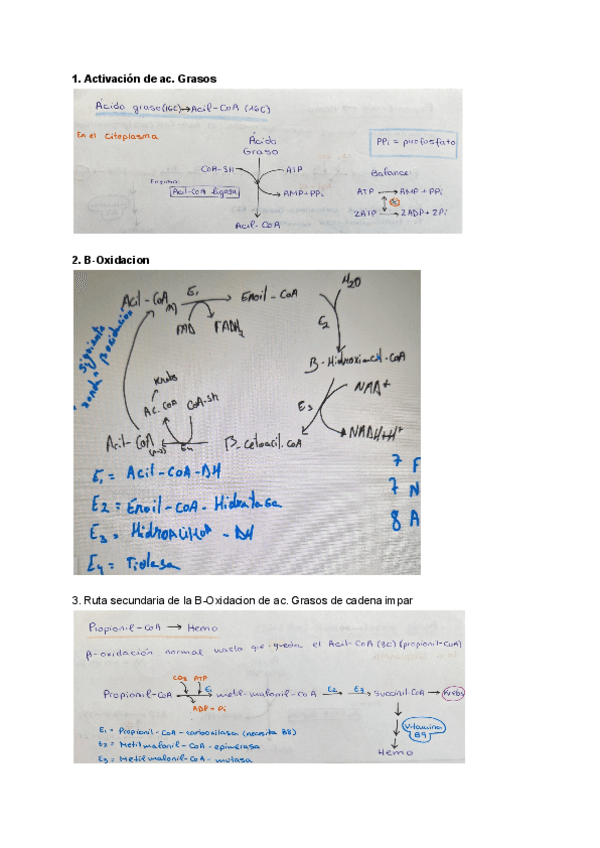 1. Activación de ac. Grasos
Ácido graso(16C)→Acil-CoA (16C)
En el citoplasma
Ácido
Graso
PPi = pirofosfato
CoA-SH
ATP
Balance:
Enzima:
Acil-CoA ligasa
AMP+PPi
ATP → AMP + PPi
2ATP → 2ADP+2Pi
Acil-CoA
2. B-Oxidacion
Acil-CoA
(n)
E1
Enoil-CoA
H2O
FAD
FADH2
E2
Siguiente
ronda β oxidación
β-Hidroxiacil-CoA
Krebs
Ac.CoA
CoA-SH
E3
NAD+
NADH+H+
Acil-CoA
(n-2)
E4
β-cetoacil.CoA
E1 = Acil-CoA-DH
7 F
E2 = Enoil-CoA-Hidratasa
7 N
E3 = Hidroxiacil CoA - DH
8 A
E4 = Tiolasa
3. Ruta secundaria de la B-Oxidacion de ac. Grasos de cadena impar
Propionil-CoA → Hemo
β-oxidación normal hasta que queda el Acil-CoA (3C) (propionil-CoA)
CO2 ATP
Propionil-CoA
E1
metil-malonil-CoA
E2
E3
Succinil-CoA → Krebs
ADP + Pi
E1 = Propionil-CoA-carboxilasa (necesita B8)
E2 = Metil malonil-CoA-epimerasa
E3 = Metil malonil-CoA-mutasa
Vitamina
B9
Hemo